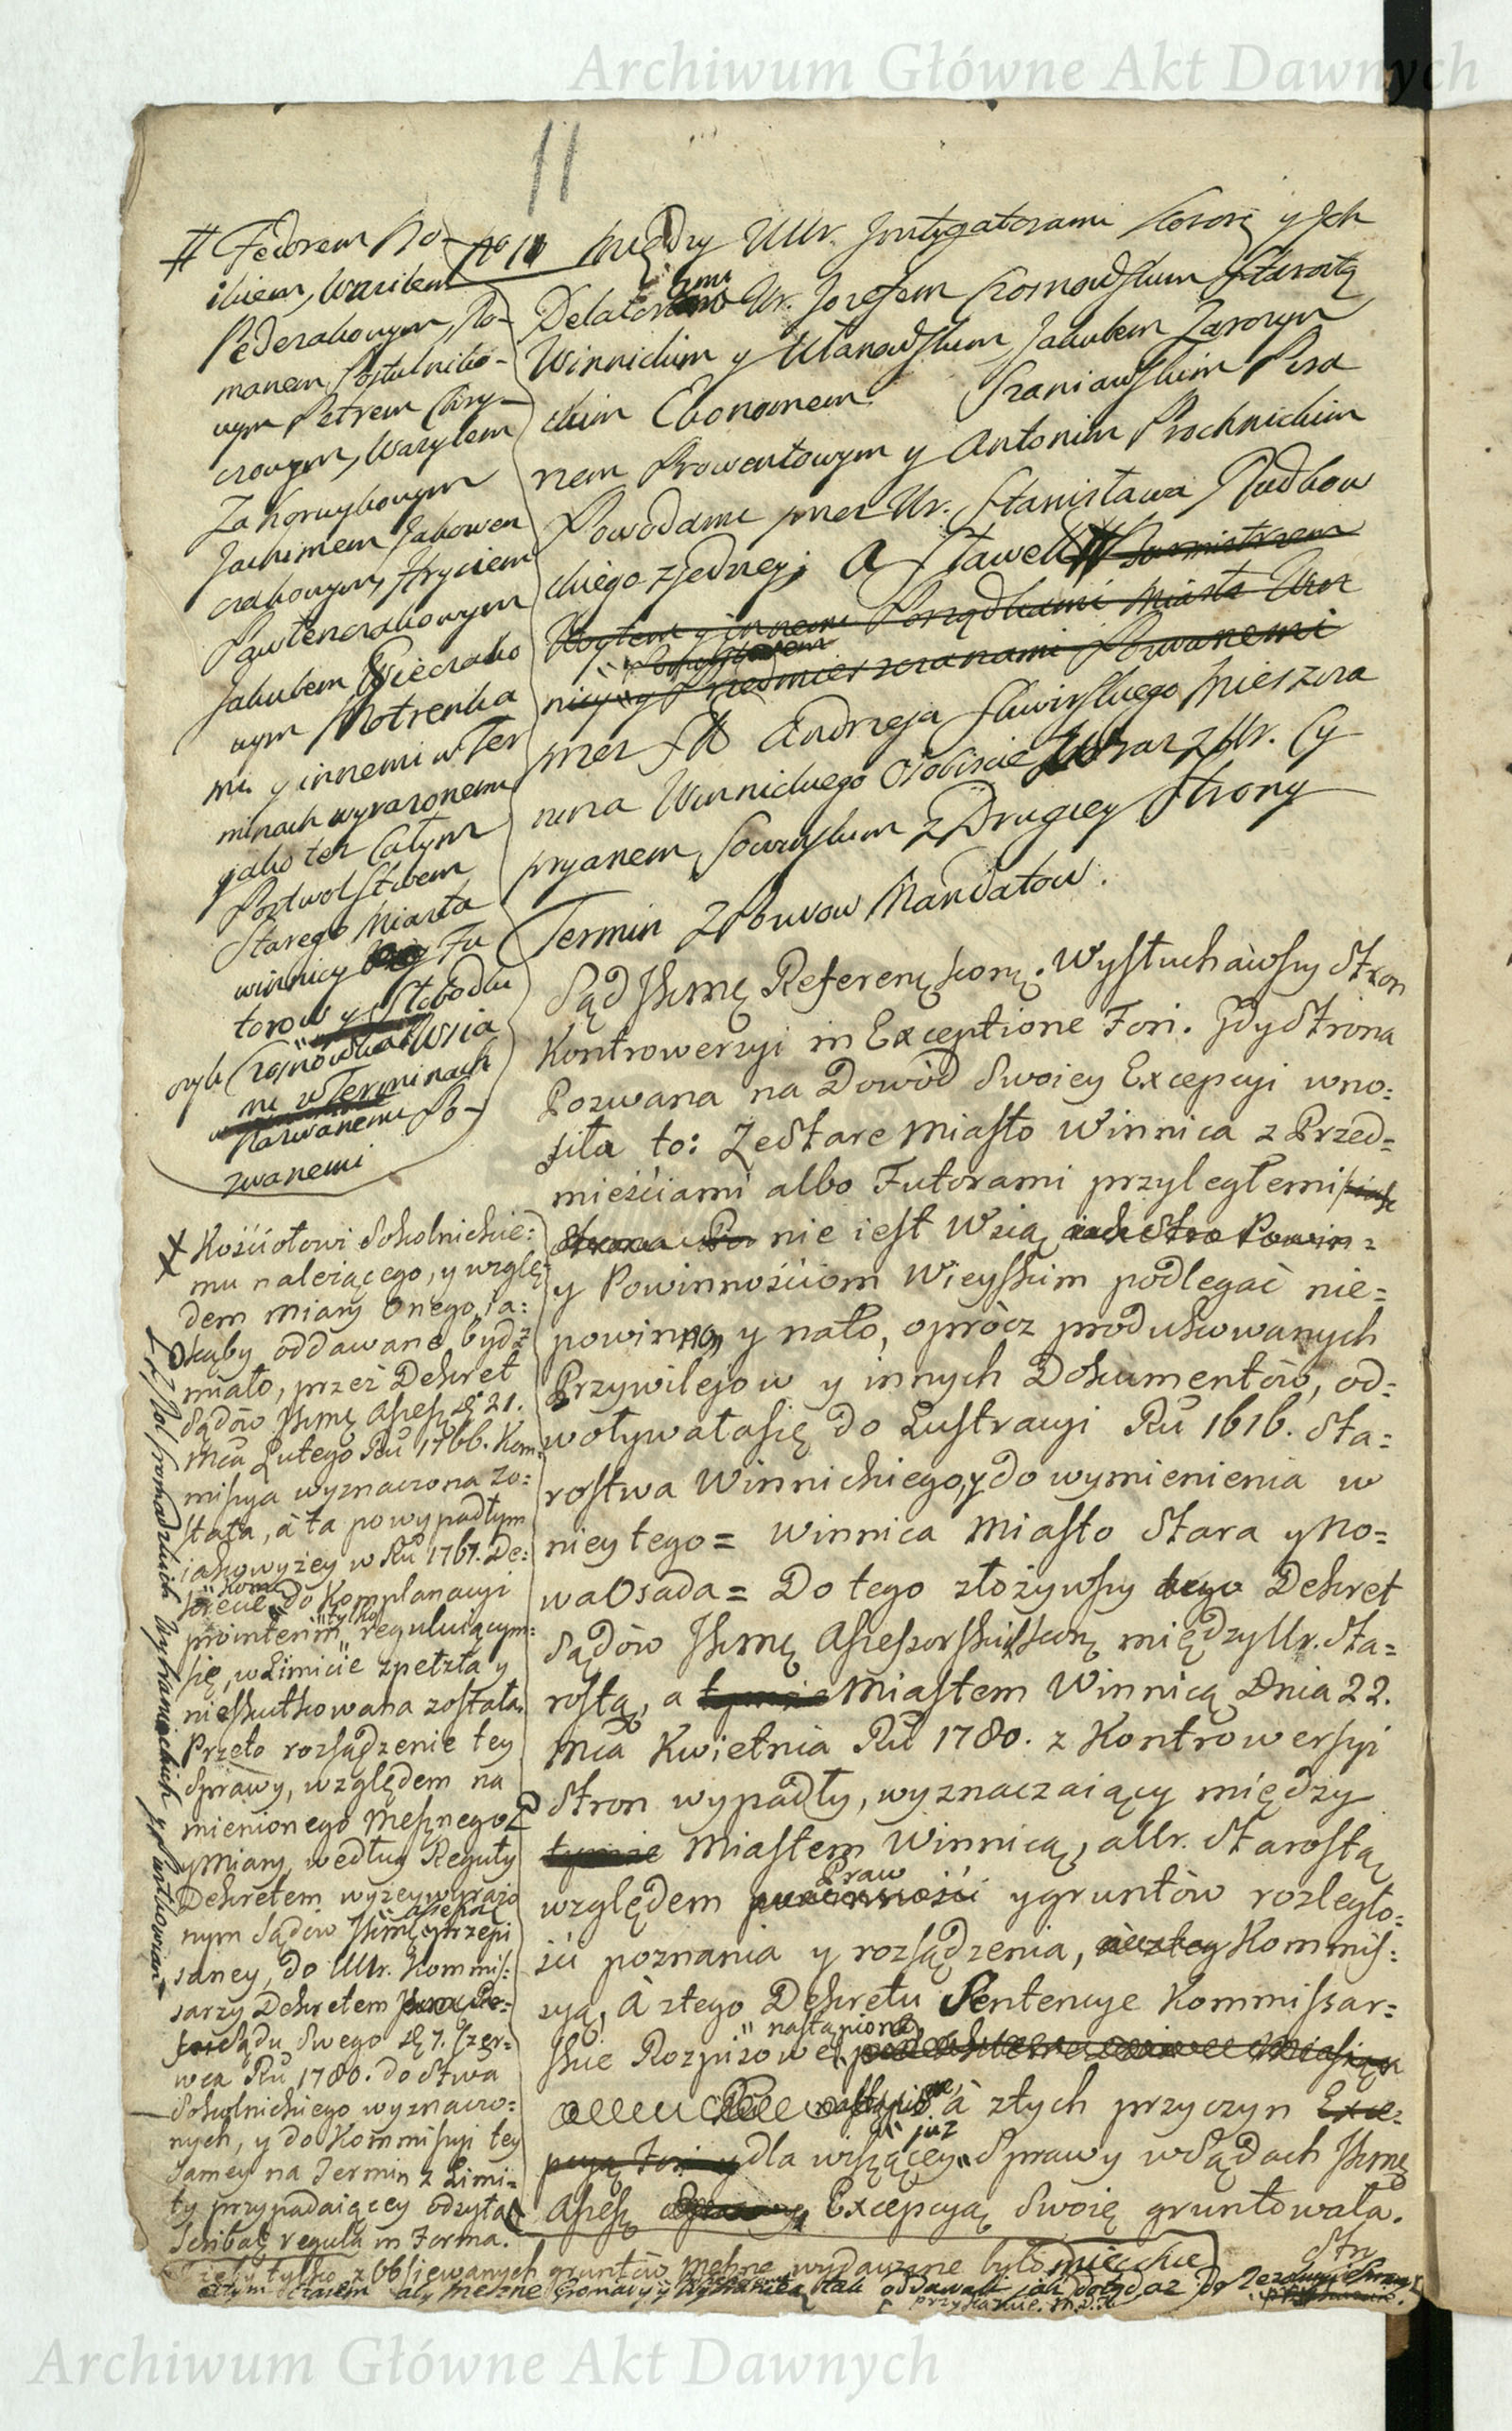 Archiwum Główne Akt Dawnych
11
# Fedorem
ikiem, Wasilem
Pederakowym, Ro-
manem Postulniko-
wym Petrem Chry-
czowym, Wasylem
Zahoruykowym
Jachimem Jakowen
czakowym, Hryciem
Pawlenczakowym
Jakubem
wym Motrenka
mi y innemi w Ter
minach wyrazonemi
jako tez Całym
Pospolstwem
Starego Miasta
winnicy Fu
torow y Słobodki
czyli Wsia
mi w Terminach
Nazwanemi Po-
zwanemi
No 11 między UUr. Instygatorami Koron y Ich
Delatorami Ur. Jozefem Czosnowskim Starostą
Winnickim y Ułanowskim Jakubem Zarozyn
skim Ekonomem Szaniawskim Pisa
rzem Prowentowym y Antonim Prochnickim
Powodami przez Ur. Stanisława Rudkow
skiego z jedney; A Sławet # Burmistrzem
Woytem y innemi Porządkami Miasta Win
nicy y Przedmieszczanami Pozwanemi
przez Sł Andrzeja Sliwinskiego Mieszcza
nina Winnickiego Osobiscie Wraz z Ur. Cy
pryanem z Drugiey Strony
Termin z Pozwow Mandatow.
Sąd Jkmę Referenç konç. Wysłuchawszy Stron
Kontrowersyi in Exceptione Fori. Gdy Strona
Pozwana na Dowód Swoiey Excepcyi wno:
siła to: Ze Stare Miasto Winnica z Przed=
mieściami albo Futorami przyległemi
Strona nie iest Wsią
y Powinnościom Wieyskim podlegać nie=
powinno, y na to, oprócz produkowanych
Przywilejow y innych Dokumentów, od=
woływała się do Lustracyi Rū 1616. Sta=
rostwa Winnickiego, y do wymienienia w
niey tego = Winnica Miasto Stara y No=
wa Osada = Do tego złożywszy Dekret
Sądów Jkmę Assessorskich konç między Ur. Sta=
rostą, a Miastem Winnicą Dnia 22.
Mca Kwietnia Rū 1780. z Kontrowersyi
Stron wypadły, wyznaczaiący między
Miastem Winnicą, a Ur. Starostą
względem Praw y gruntów rozległo=
ści poznania y rozsądzenia, Kommis:
syą, à z tego Dekretu Sentencye Kommissar=
skie Rozpisowe nastąpione
à z tych przyczyn Exce=
pcyą Fori y dla wiszącey już Sprawy w Sądach Jkmę
Assess Excepcyą Swoię gruntowała.
Str
X Kościołowi Sokolnickie=
mu należącego, y wzglę=
dem miary onego, ja=
kąby oddawane bydź
miało, przez Dekret
Sądów Jkmę Assess D 21.
Mca Lutego Rū 1766. Kom:
missya wyznaczona zo:
stała, à ta po wypadłym
iako wyżey w Rū 1767. De:
krecie, do Komplanacyi
pro interim tylko reguluiącym
się, w Limicie zpełzła y
nieskutkowana została.
Przeto rozsądzenie tey
Sprawy, względem na
mienionego Mesznego
y Miary, według Reguły
Dekretem wyżey wyrażo
nym Sądów Jkmę Assess przepi
saney, do UUr. Kommis:
sarzy Dekretem
Sądu Swego D 7. Czer=
wca Rū 1780. do Stwa
Sokolnickiego wyznaczo=
nych, y do Kommissyi tey
samey na Termin z Limi=
ty przypadaiącey odsyła
Scribat regula in Forma.
Żeby tylko z obsiewanych gruntów meszne wydawane było
tym czasem aby meszne tak oddawali jak dotąd, az do
przykazuie.
Archiwum Główne Akt Dawnych